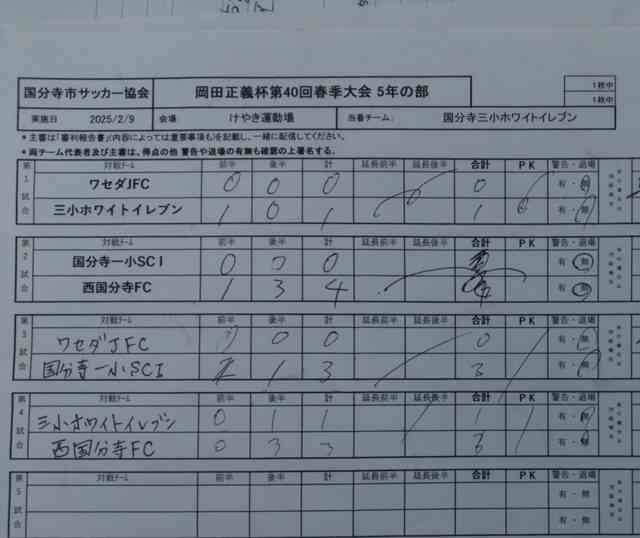 国分寺市サッカー協会 岡田正義杯第40回春季大会 5年の部 1枚中
1枚中
実施日 2025/2/9 会場 けやき運動場 当番チーム: 国分寺三小ホワイトイレブン
*主審は「審判報告書」(内容によっては重要事項も)を記載し、一緒に配信してください。
*両チーム代表者及び主審は、得点の他 警告や退場の有無も確認の上署名する。
第1試合 対戦チーム 前半 後半 計 延長前半 延長後半 合計 PK 警告・退場
ワセダJFC 0 0 0 0 有・無
三小ホワイトイレブン 1 0 1 1 有・無
第2試合 対戦チーム 前半 後半 計 延長前半 延長後半 合計 PK 警告・退場
国分寺一小SCI 0 0 0 有・無
西国分寺FC 1 3 4 4 有・無
第3試合 対戦チーム 前半 後半 計 延長前半 延長後半 合計 PK 警告・退場
ワセダJFC 0 0 0 有・無
国分寺一小SCI 2 1 3 3 有・無
第4試合 対戦チーム 前半 後半 計 延長前半 延長後半 合計 PK 警告・退場
三小ホワイトイレブン 0 1 1 1 有・無
西国分寺FC 0 3 3 3 有・無
第5試合 対戦チーム 前半 後半 計 延長前半 延長後半 合計 PK 警告・退場
有・無
有・無